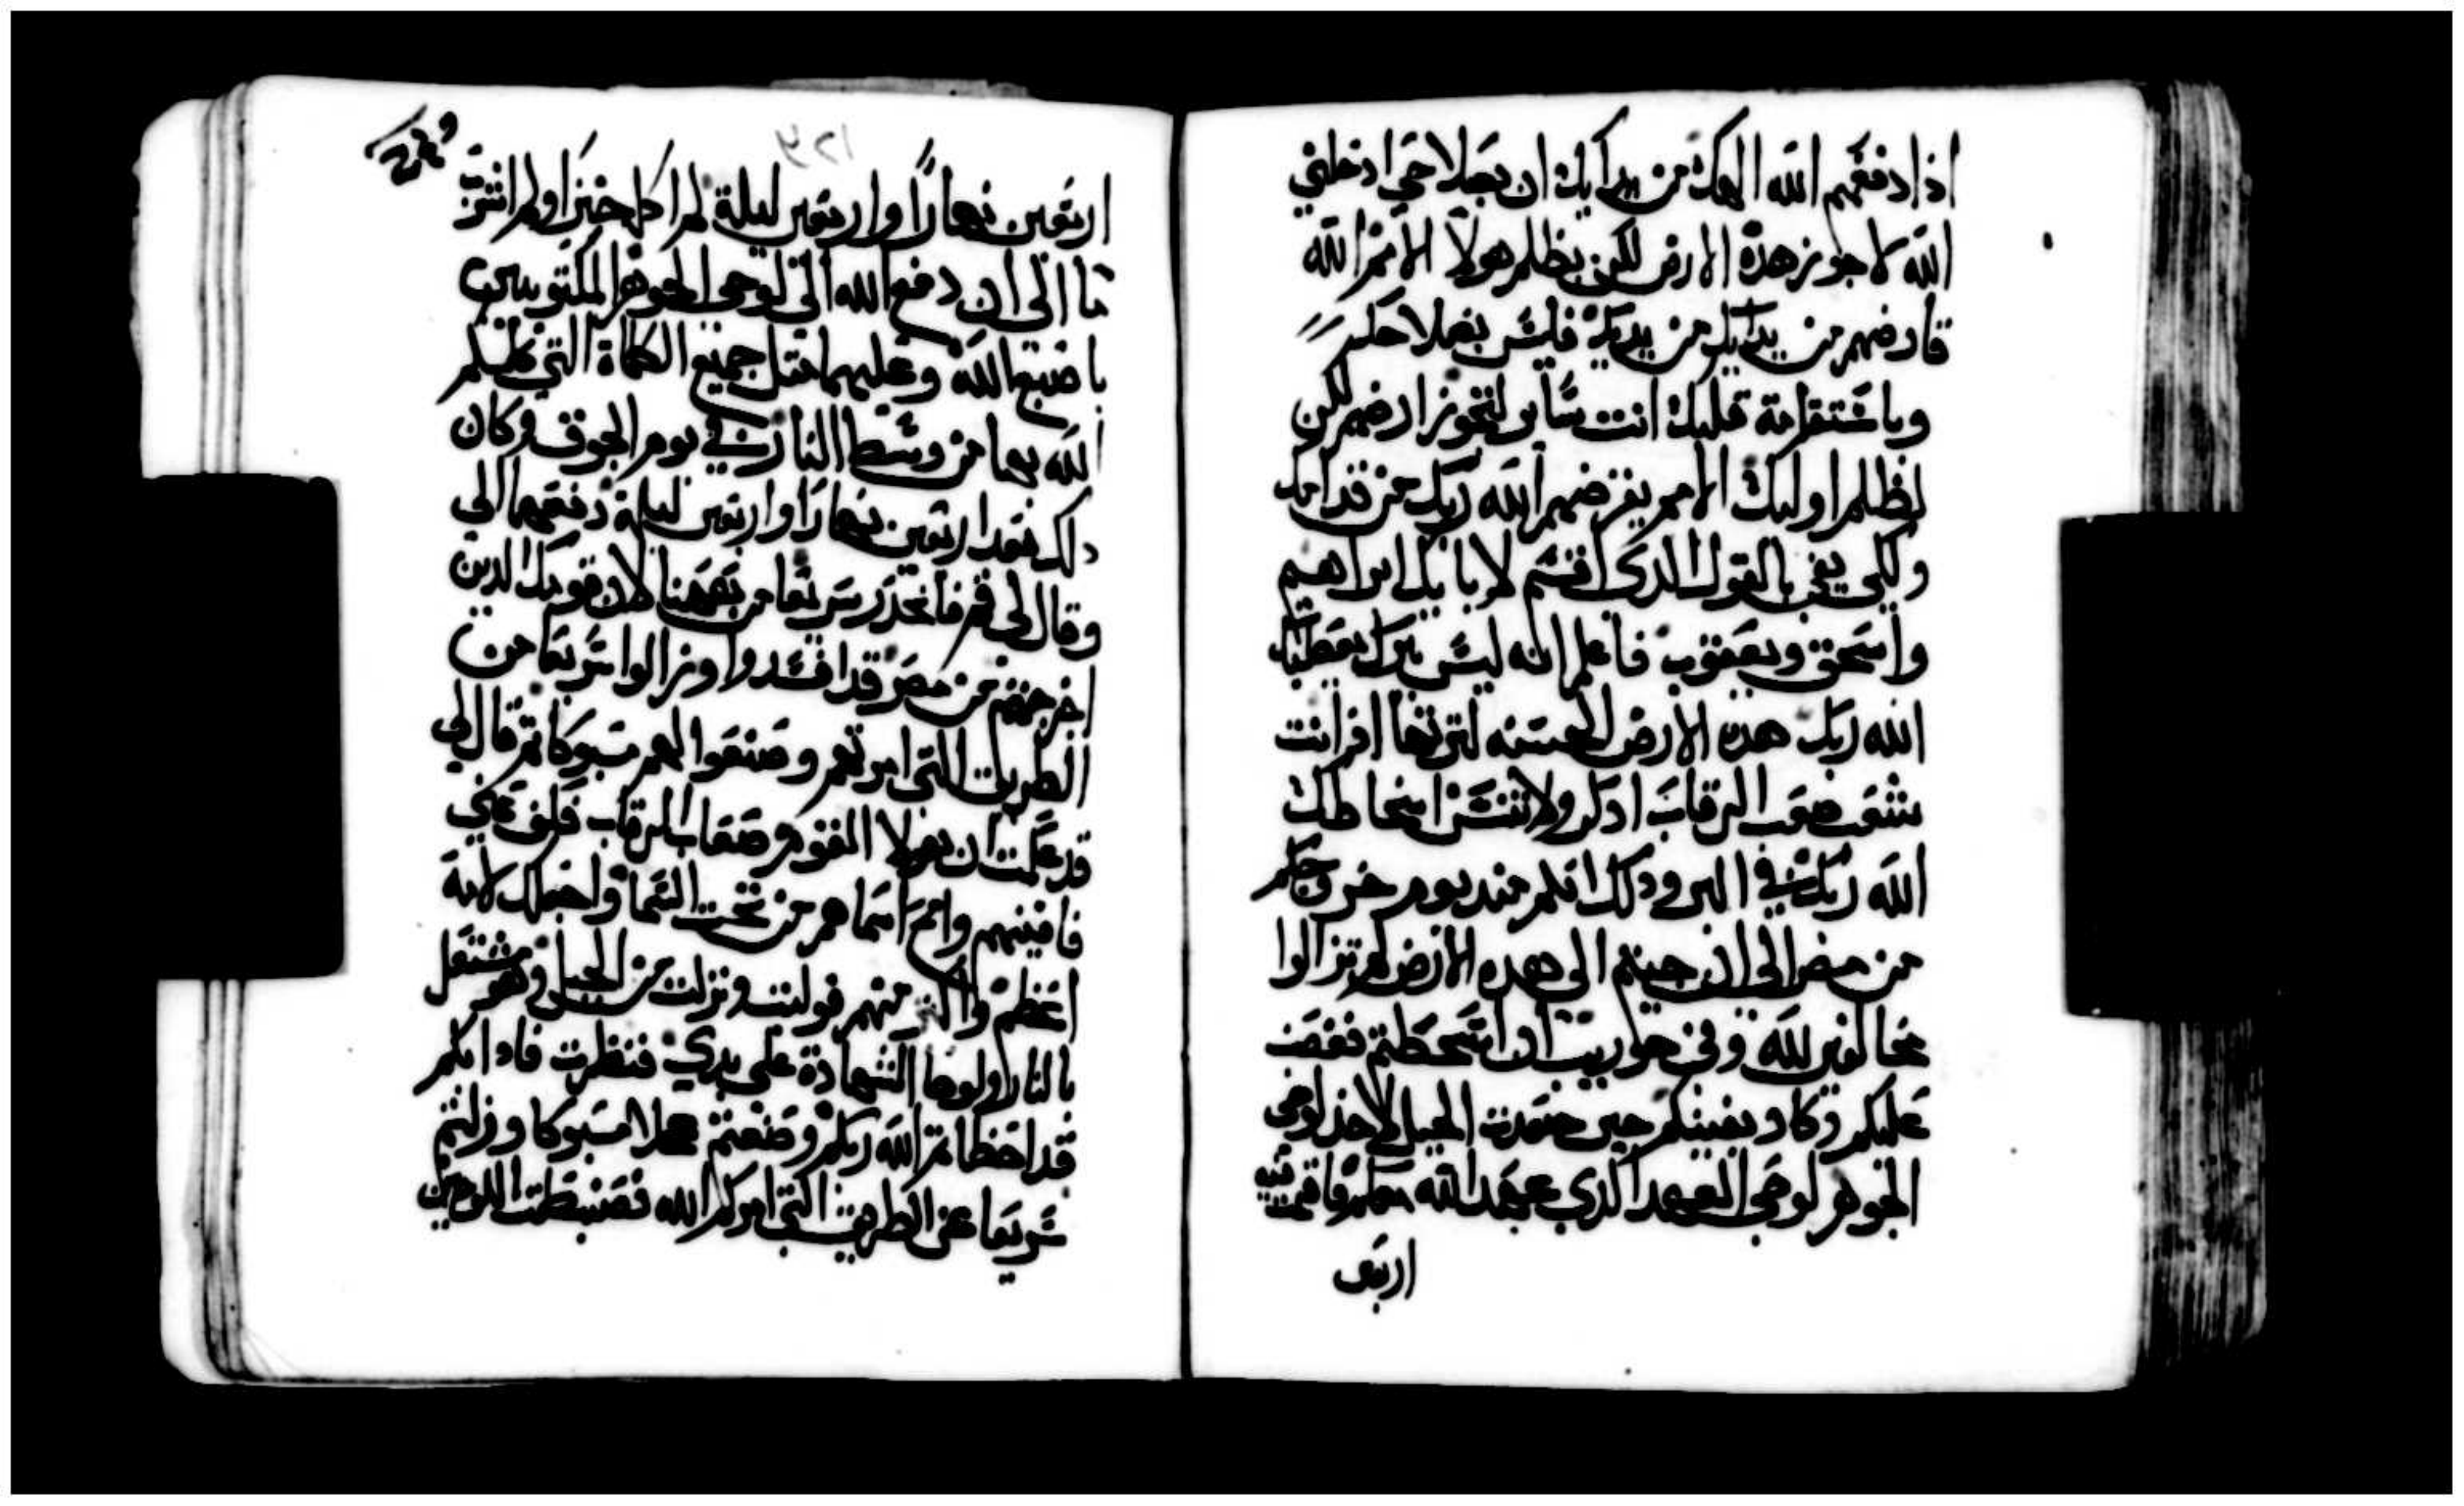 اذا دفعهم الله الهك من يدايك ان بعدلاحي ادخلني
الله لاجوز هذه الارض لكن بظلم هولا الامم الله
قارضهم من يدايك من يديك فليس بعدلاحك
وباستقامة قلبك انت ساير لتحوز ارضهم لكن
لظلم اوليك الامم يقرضهم الله ربك من قدامك
ولكي يفي بالقول الدي اقسم لابايك ابراهيم
واسحق ويعقوب فاعلم انه ليس ببرك يعطيك
الله ربك هده الارض الحسنه لترتها افرانت
شعب صعب الرقاب ادكر ولا تنس اسخاطك
الله ربك في البر ودلك انكم مند يوم خروجكم
من مصر الى ان جيتم الى هده الارض لم تزالوا
مخالفين لله وفي حوريب ان اسخطتم فغضب
عليكم وكاد يفينكم حين صعدت الجبل لاخد لوحي
الجوهر لوحي العهد الدي عهد الله معكم فاقمت فيه
اربعين
اربعين نهارًا واربعين ليلة لم اكل خبزا ولم اشرب
ما الى ان دفع الله الي لوحي الجوهر المكتوبين
باصبع الله وعليهما مثل جميع الكلماة التي كلمكم
الله بها من وسط النار في يوم الجوق وكان
دلك بعد اربعين نهارا واربعين ليلة دفعهما الي
وقال لي قم فانحدر سريعا من هاهنا لان قومك الدين
اخرجتهم من مصر قد افسدوا وزالوا سريعا من
الطريق التي امرتهم وصنعوا لهم مسبوكا تم قال لي
قد علمت ان هولا القوم صعاب الرقاب فلف عني
فافنيهم وامح اسماهم من تحت السما واجعلك لامة
اعظم واكثر منهم فوليت ونزلت من الجبل وهو مشتعل
بالنار ولوحا الشهادة على يدي فنظرت فادا بكم
قد اخطاتم الله ربكم وصنعتم عجلا مسبوكا وزلتم
سريعا عن الطريق التي امركم الله فضبطت اللوحين